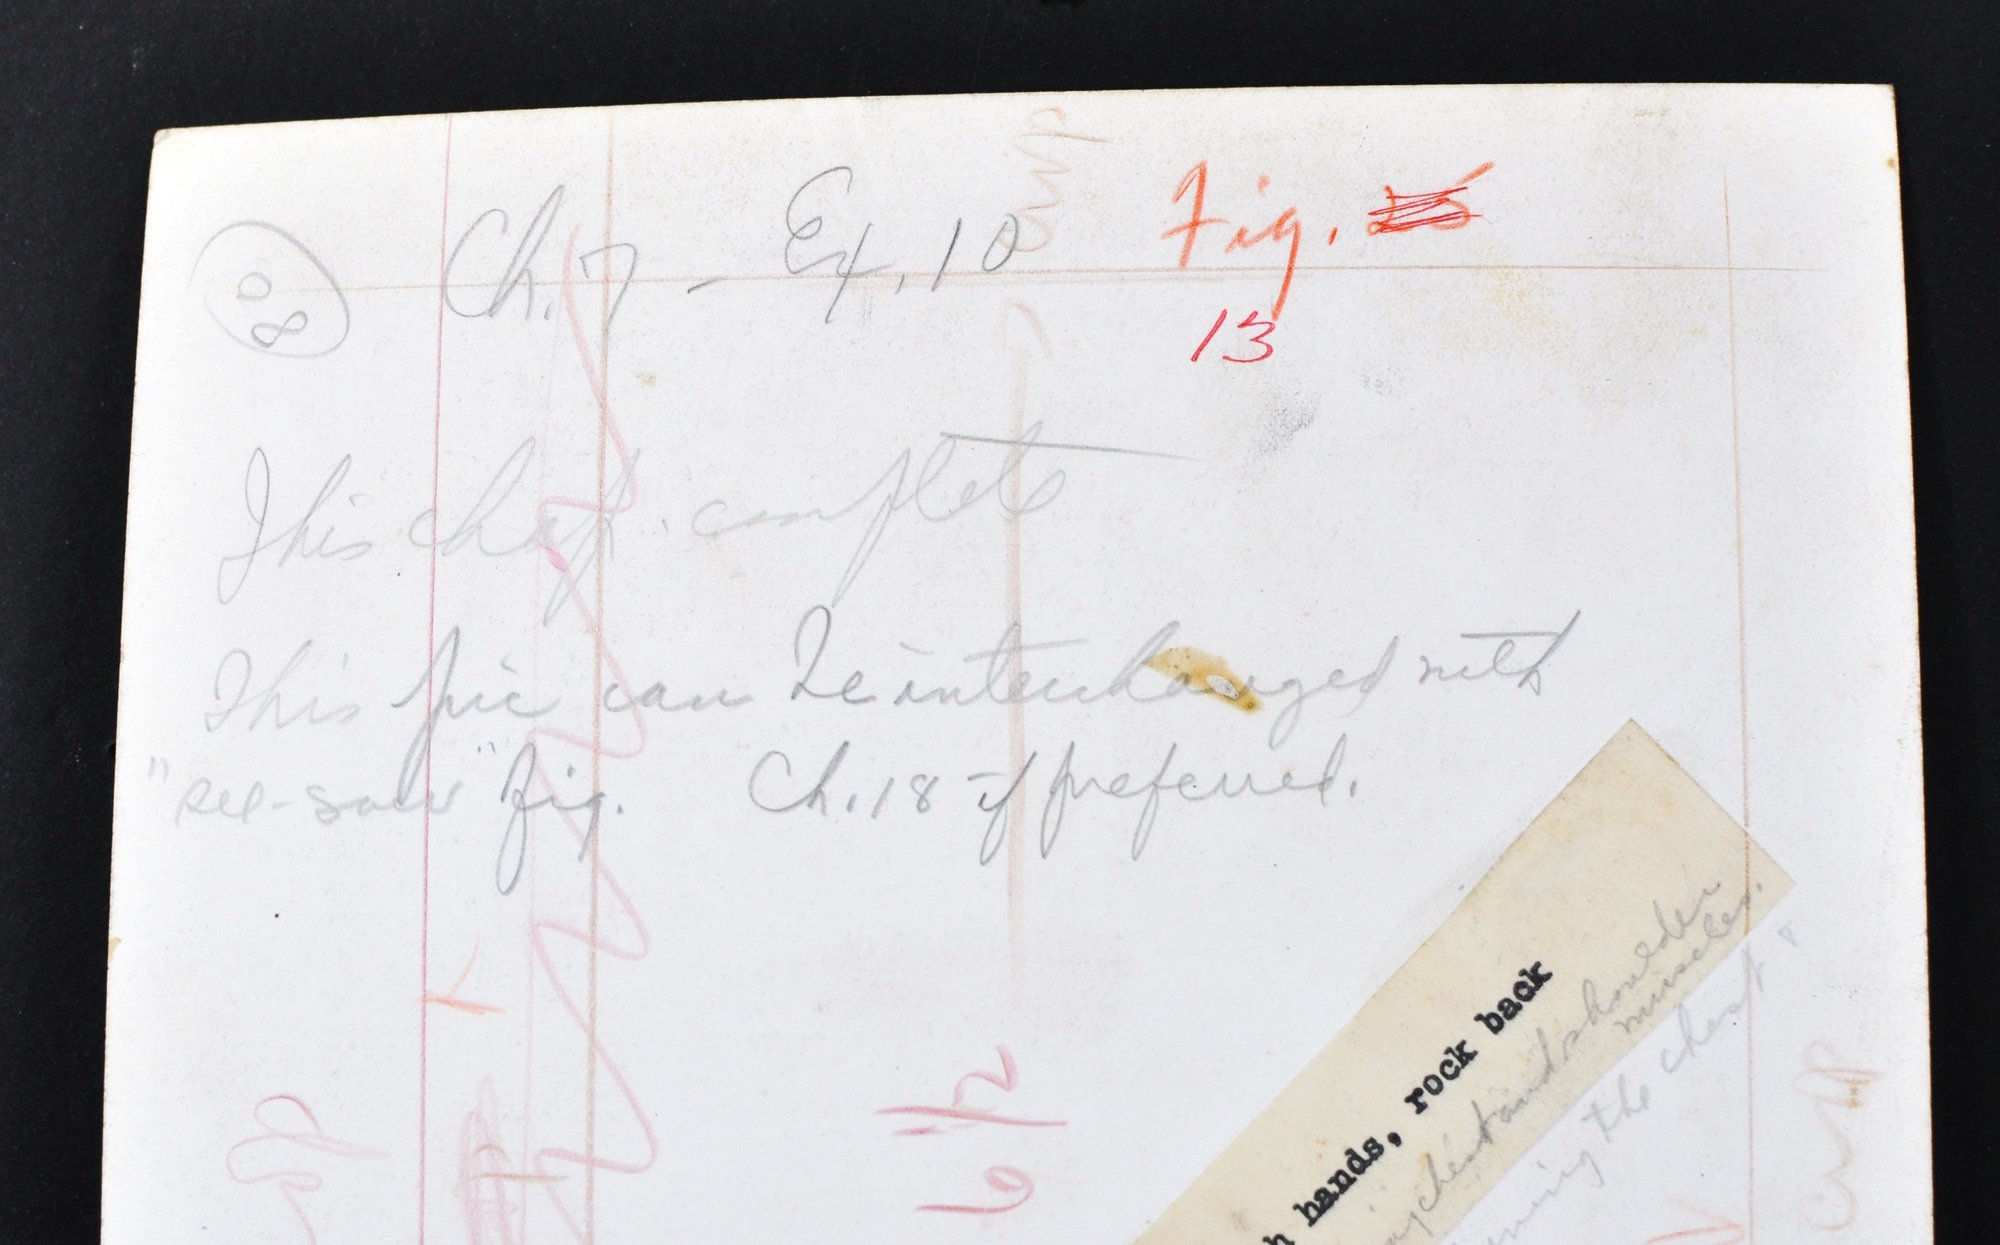 80
Ch. 7 - Ex. 10 Fig.
13
This chap. complete
This pic can be interchanged with
"see-saw" fig. Ch. 18 if preferred.
hands, rock back
chest and shoulder
muscles.
the chest &
6 1/2
crop
crop